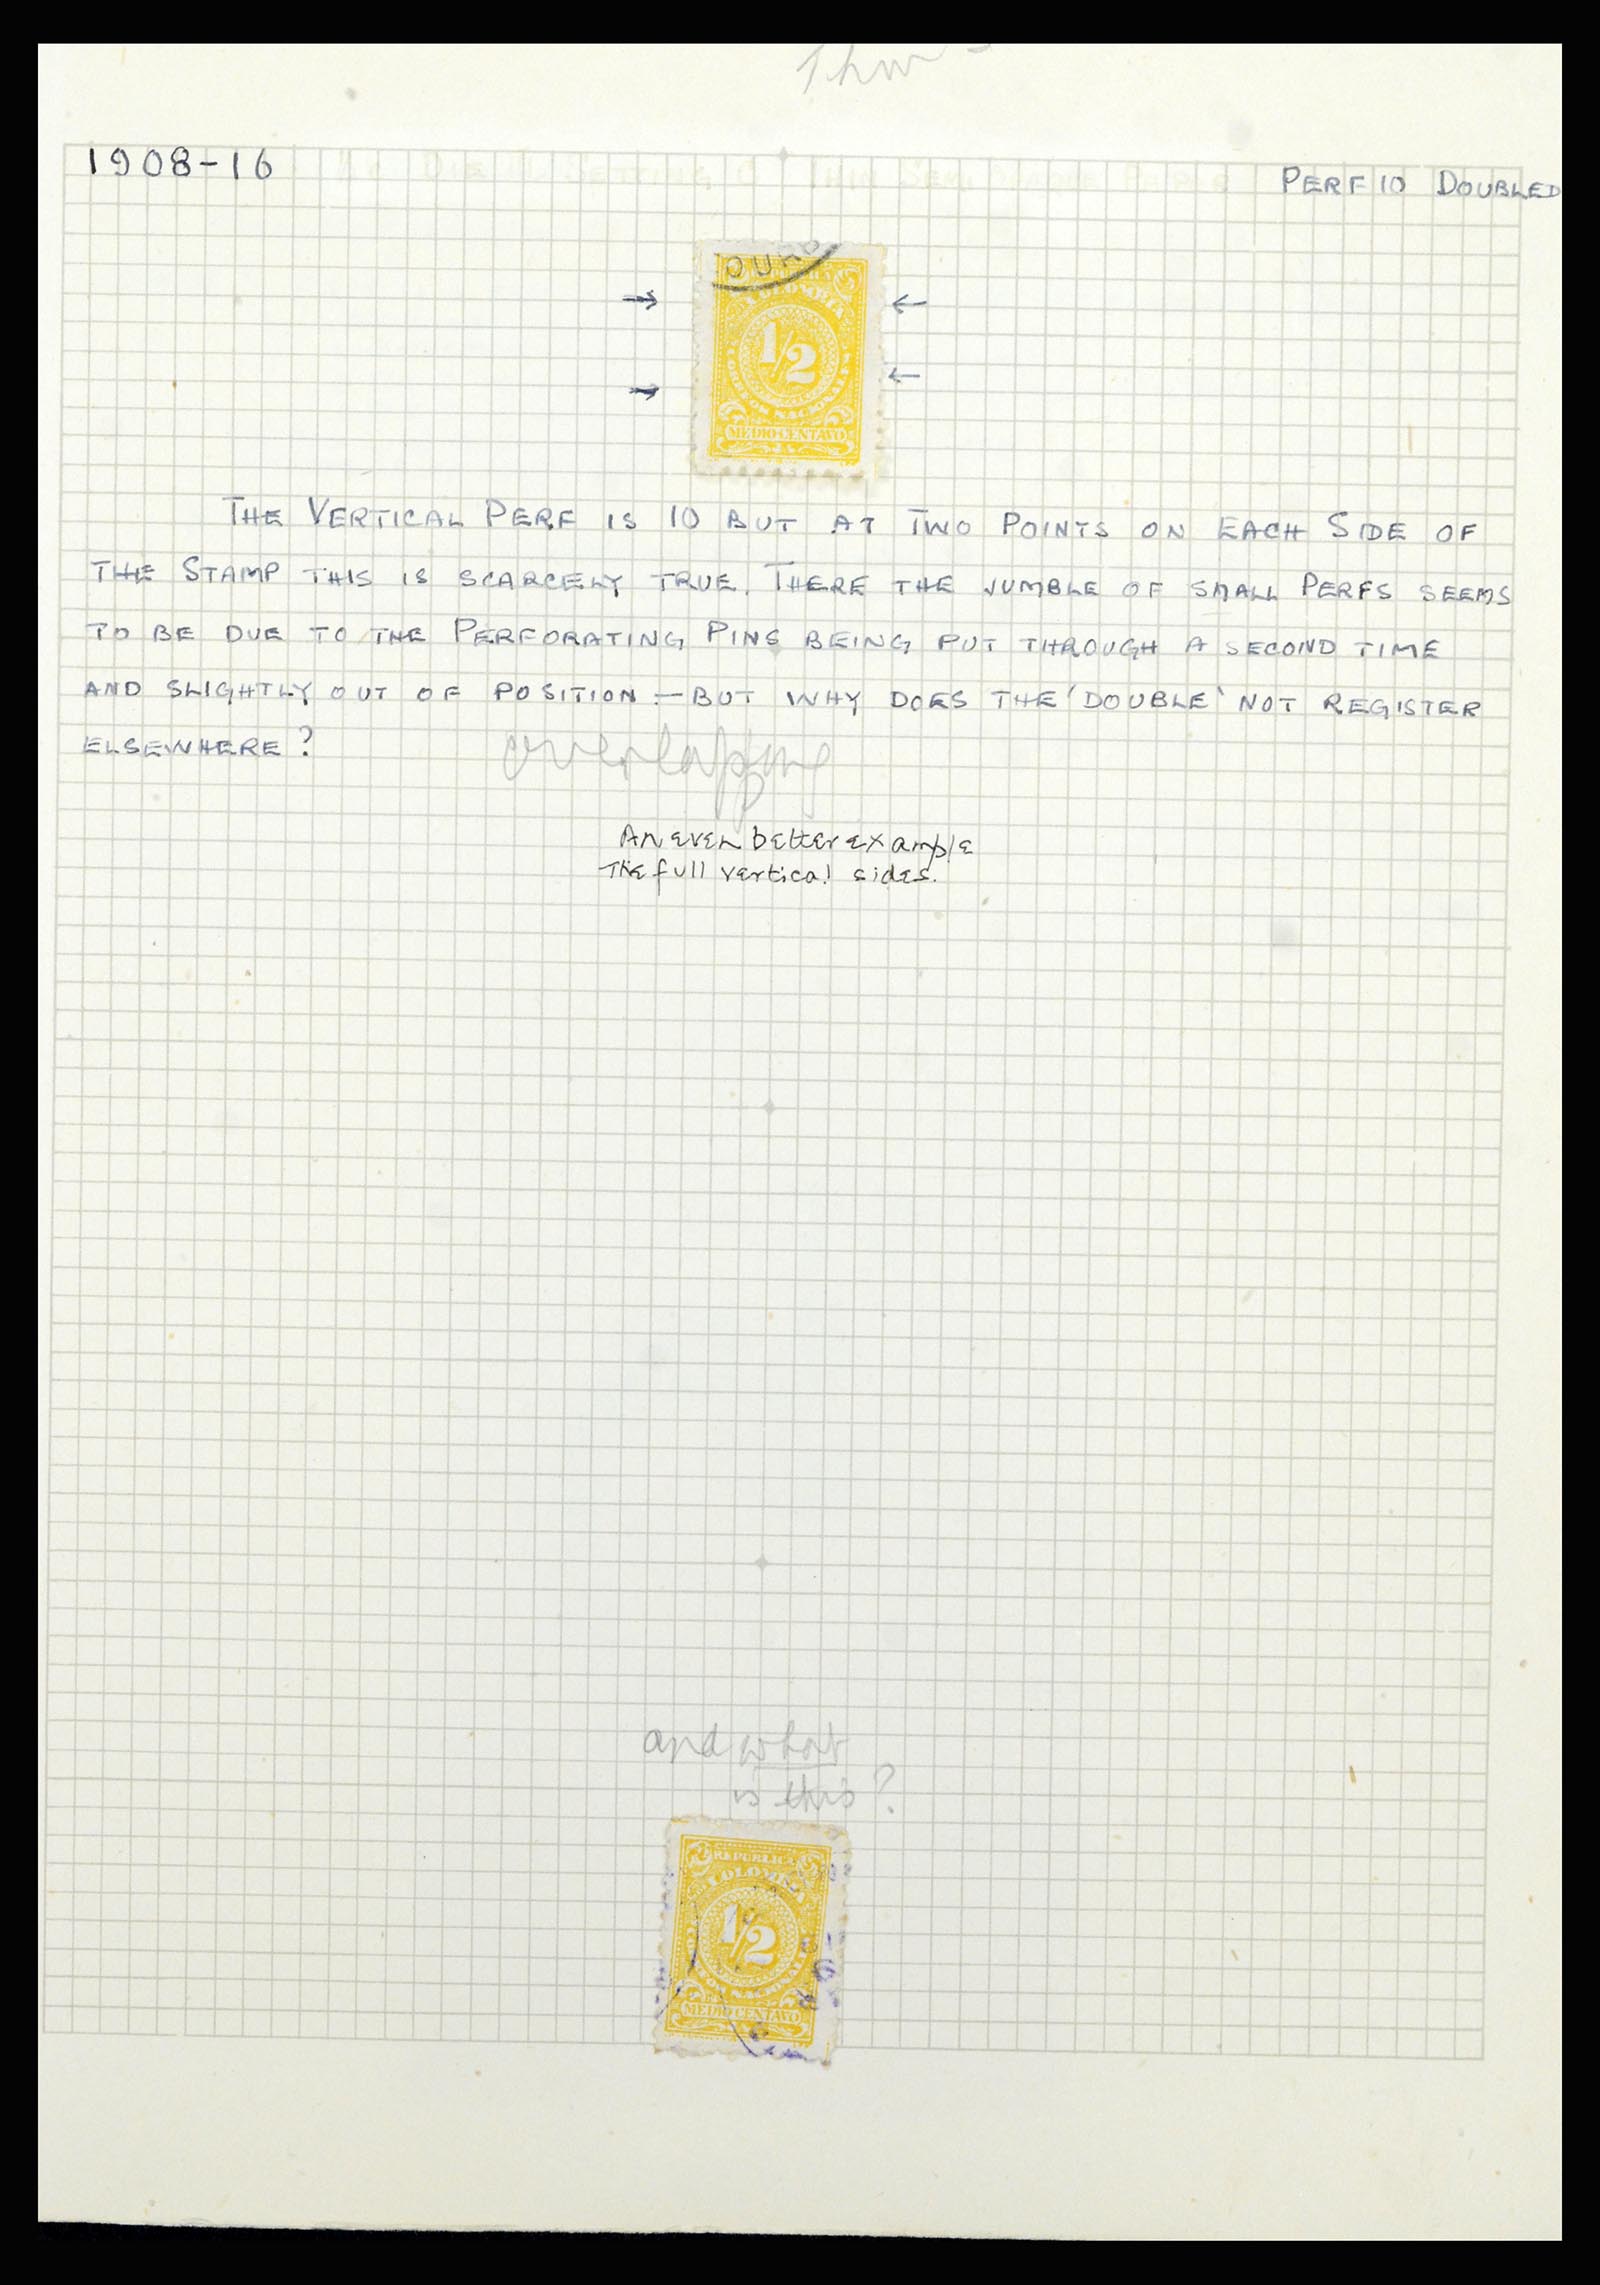 1908-16
PERF 10 DOUBLED
OURO
COLOMBIA
1/2
CORREOS NACIONALES
MEDIO CENTAVO
THE VERTICAL PERF IS 10 BUT AT TWO POINTS ON EACH SIDE OF
THE STAMP THIS IS SCARCELY TRUE. THERE THE JUMBLE OF SMALL PERFS SEEMS
TO BE DUE TO THE PERFORATING PINS BEING PUT THROUGH A SECOND TIME
AND SLIGHTLY OUT OF POSITION – BUT WHY DOES THE 'DOUBLE' NOT REGISTER
ELSEWHERE?
overlapping
An even better example
The full vertical sides.
and what
is this?
REPUBLICA
COLOMBIA
1/2
CORREOS NACIONALES
MEDIO CENTAVO